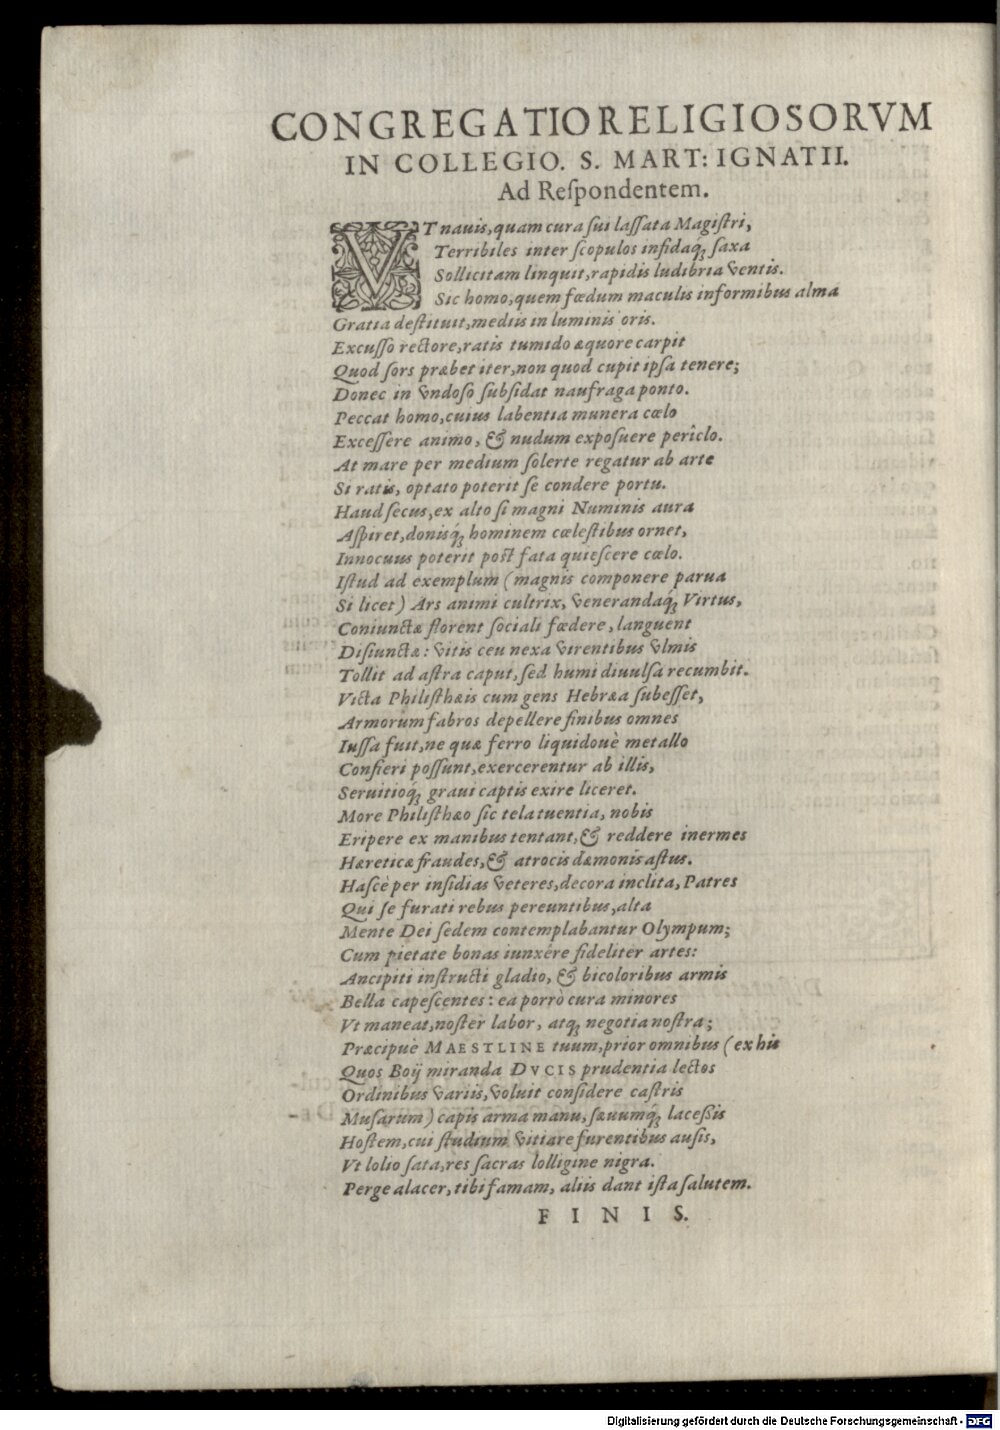 CONGREGATIO RELIGIOSORVM
IN COLLEGIO. S. MART: IGNATII.
Ad Reſpondentem.
VT nauis, quam cura ſui laſſata Magiſtri,
Terribiles inter ſcopulos infidaq́; ſaxa
Sollicitam linquit, rapidis ludibria ventis.
Sic homo, quem fœdum maculis informibus alma
Gratia deſtituit, mediis in luminis oris.
Excuſſo rectore, ratis tumido æquore carpit
Quod ſors præbet iter, non quod cupit ipſa tenere;
Donec in vndoſo ſubſidat naufraga ponto.
Peccat homo, cuius labentia munera cœlo
Exceſſere animo, & nudum expoſuere perîclo.
At mare per medium ſolerte regatur ab arte
Si ratis, optato poterit ſe condere portu.
Haud ſecus, ex alto ſi magni Numinis aura
Aſpiret, donisq́; hominem cœleſtibus ornet,
Innocuus poterit poſt fata quieſcere cœlo.
Iſtud ad exemplum (magnis componere parua
Si licet) Ars animi cultrix, venerandaq́; Virtus,
Coniunctæ florent ſociali fœdere, languent
Diſiunctæ: vitis ceu nexa virentibus vlmis
Tollit ad aſtra caput, ſed humi diuulſa recumbit.
Victa Philiſthæis cum gens Hebræa ſubeſſet,
Armorum fabros depellere finibus omnes
Iuſſa fuit, ne quæ ferro liquidouè metallo
Confieri poſſunt, exercerentur ab illis,
Seruitioq́; graui captis exire liceret.
More Philiſthæo ſic tela tuentia, nobis
Eripere ex manibus tentant, & reddere inermes
Hæreticæ fraudes, & atrocis dæmonis aſtus.
Haſcè per inſidias veteres, decora inclita, Patres
Qui ſe furati rebus pereuntibus, alta
Mente Dei ſedem contemplabantur Olympum;
Cum pietate bonas iunxêre fideliter artes:
Ancipiti inſtructi gladio, & bicoloribus armis
Bella capeſcentes: ea porrò cura minores
Vt maneat, noſter labor, atq; negotia noſtra;
Præcipuè MAESTLINE tuum, prior omnibus (ex his
Quos Boij miranda DVCIS prudentia lectos
Ordinibus variis, voluit conſidere caſtris
Muſarum) capis arma manu, ſæuumq́; laceßis
Hoſtem, cui ſtudium vitiare furentibus auſis,
Vt lolio ſata, res ſacras lolligine nigra.
Perge alacer, tibi famam, aliis dant iſta ſalutem.
FINIS.
Digitalisierung gefördert durch die Deutsche Forschungsgemeinschaft - DFG